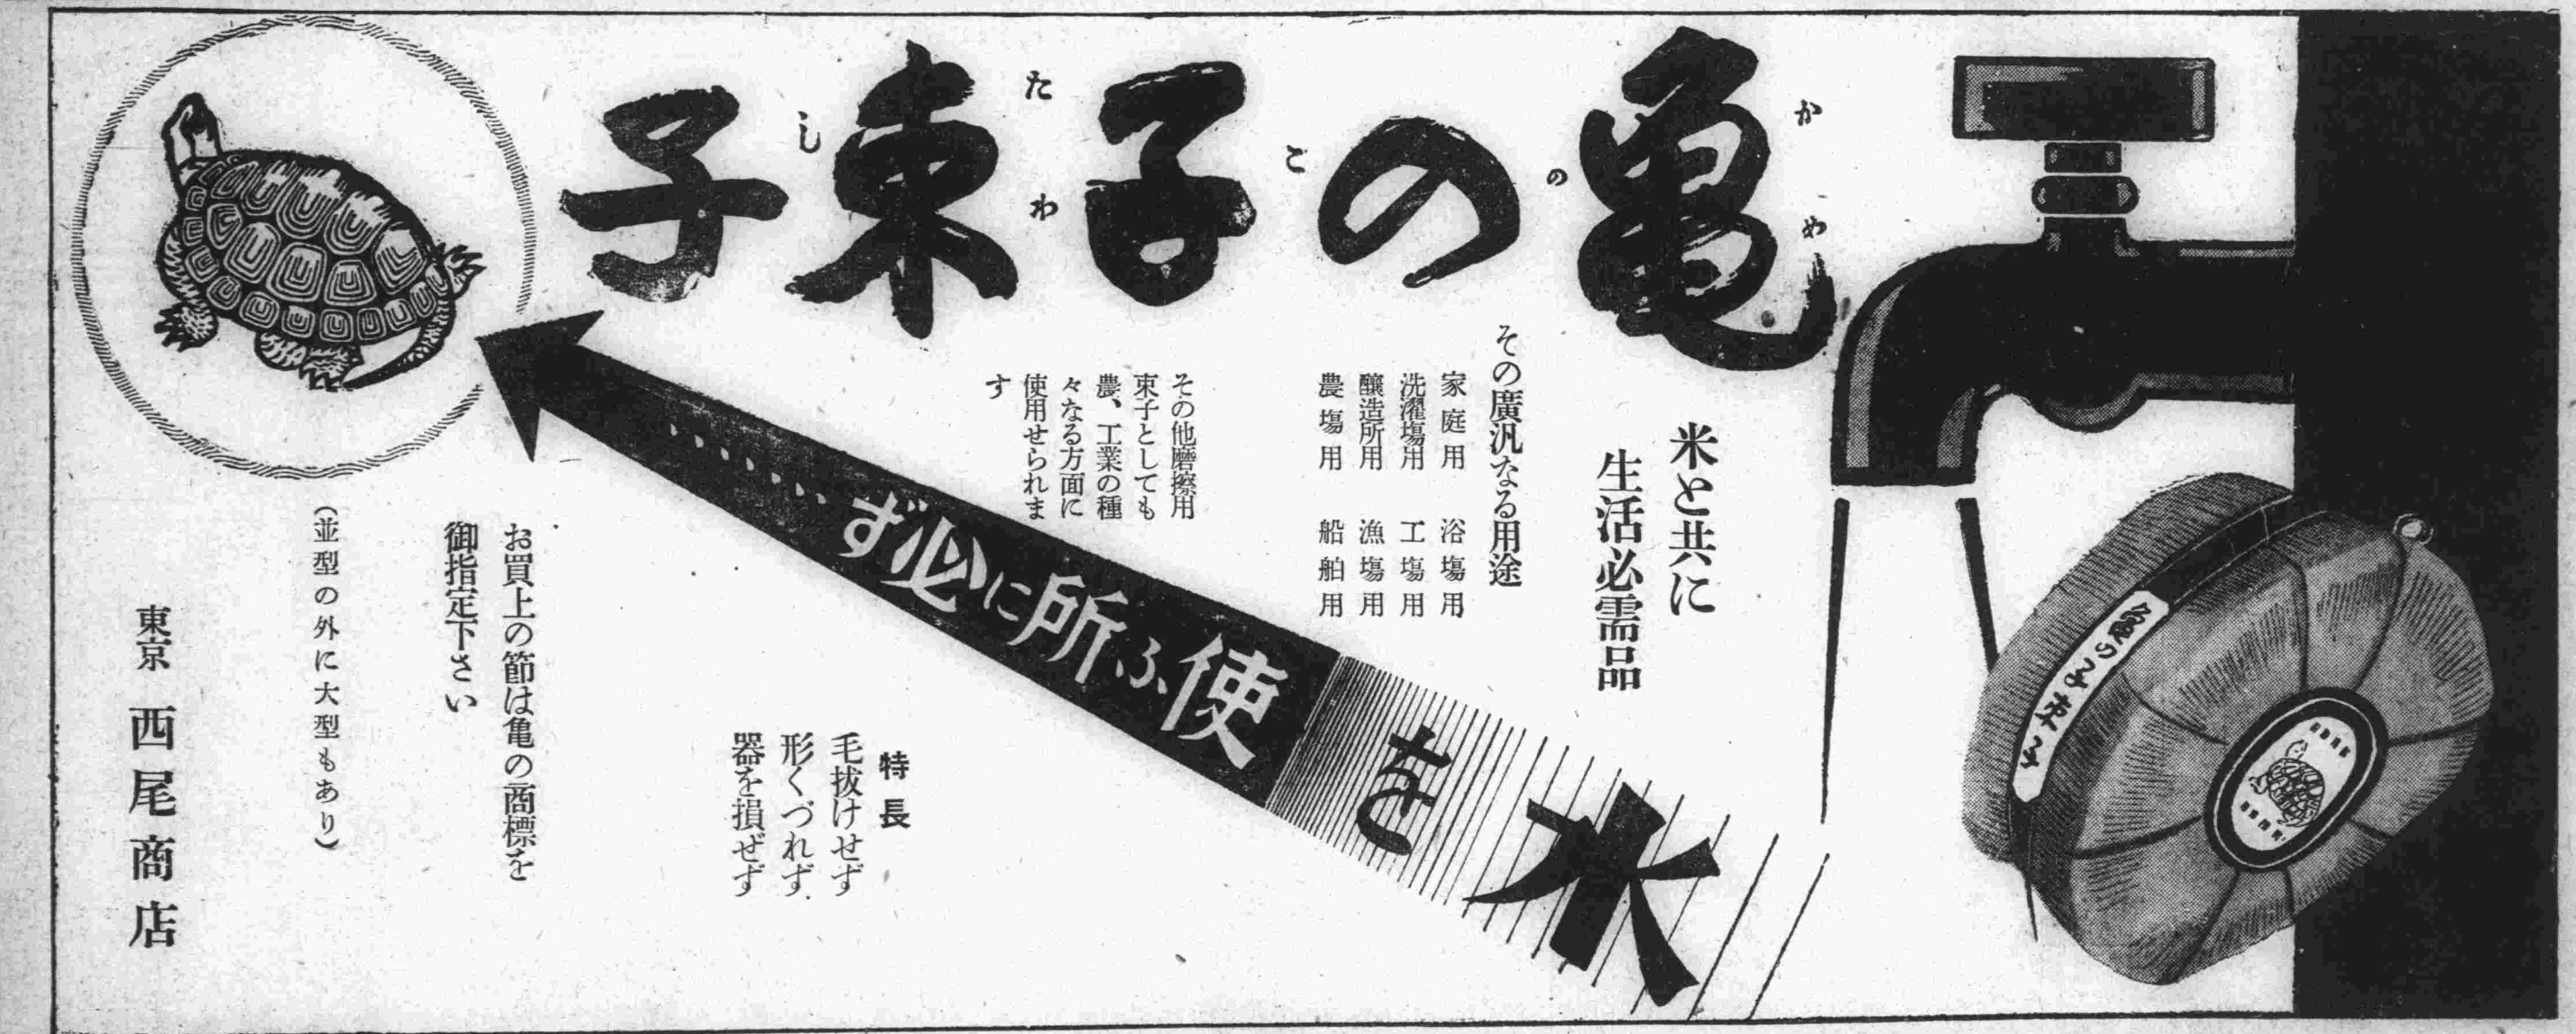 亀の子束子
かめのこたわし
米と共に
生活必需品
その廣汎なる用途
家庭用 浴場用
洗濯塲用 工塲用
醸造所用 漁塲用
農塲用 船舶用
その他磨擦用
束子としても
農、工業の種
々なる方面に
使用せられま
す
水を使ふ所に必ず……
特長
毛抜けせず
形くづれず
器を損ぜず
お買上の節は亀の商標を
御指定下さい
(並型の外に大型もあり)
東京 西尾商店
亀の子束子